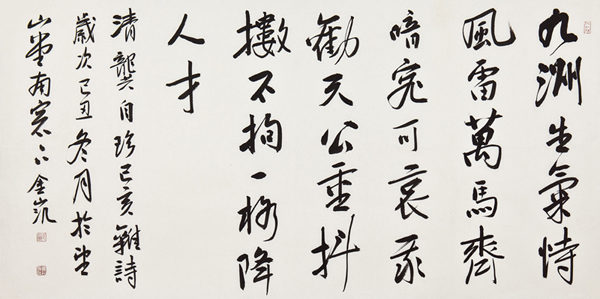 九洲生氣恃
風雷萬馬齊
喑究可哀我
勸天公重抖
擻不拘一格降
人才
清龔自珍己亥雜詩
歲次己丑冬月於
山堂南窗下金凱